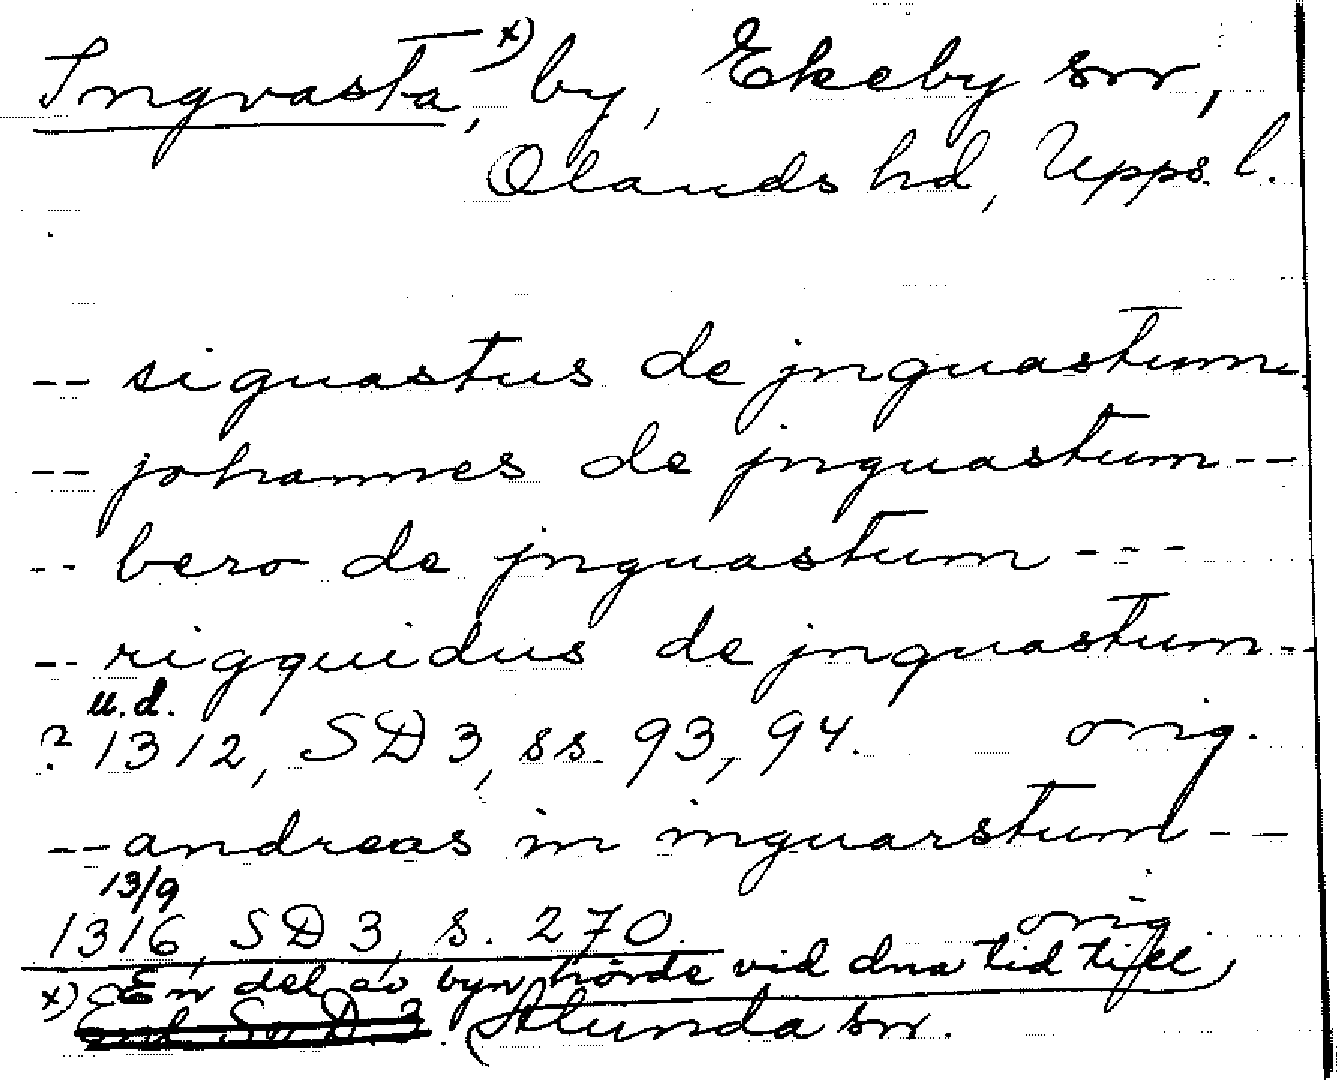 Ingvasta, x) by, Ekeby snr,
Olands hd, Upps. l.
-- siguastus de jnguastum
-- johannes de jnguastum --
-- bero de jnguastum ---
-- rigquidus de jnguastum --
u.d.
? 1312, SD 3, ss. 93, 94. orig.
-- andreas in inguarstum --
13/9
1316, SD 3, s. 270. orig.
x) En del av byn hörde vid dna tid till
Alunda sn.